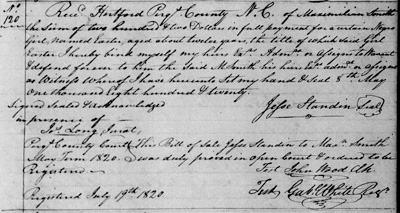 No.
120
Recd. Hertford Perqs. County N. C. of Maximilian Smith
the Sum of two hundred & two Dollars in full payment for a certain Negro
Girl, named Easter, aged about twelve years, the title of which said Girl
Easter I hereby bind myself my heirs Exrs. Admrs. or Assigns to Warrant
& defend forever to him the Said M. Smith his heirs Exrs. admrs. or assigns
as Witness Whereof I have hereunto Set my hand & Seal 8th. May
one thousand Eight hundred & twenty.
Signed Sealed & Acknowledged
Jesse Standin Seal
in presence of
Long Jurat.
Perqs. County Court This Bill of Sale Jesse Standin to Maxn. Smith
May Term 1820. was duly proved in open Court & ordered to be
Registered
Test John Wood Clk
Registered July 19th. 1820
Test White Regr.